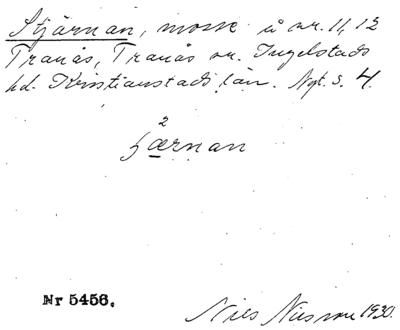 Stjärnan, mosse å nr. 11, 12
Tranås, Tranås sn. Ingelstads
hd. Kristianstads län. Nyt. S. 4.
2
ʃærnan
Nr 5456.
Nils Nilsson 1930.